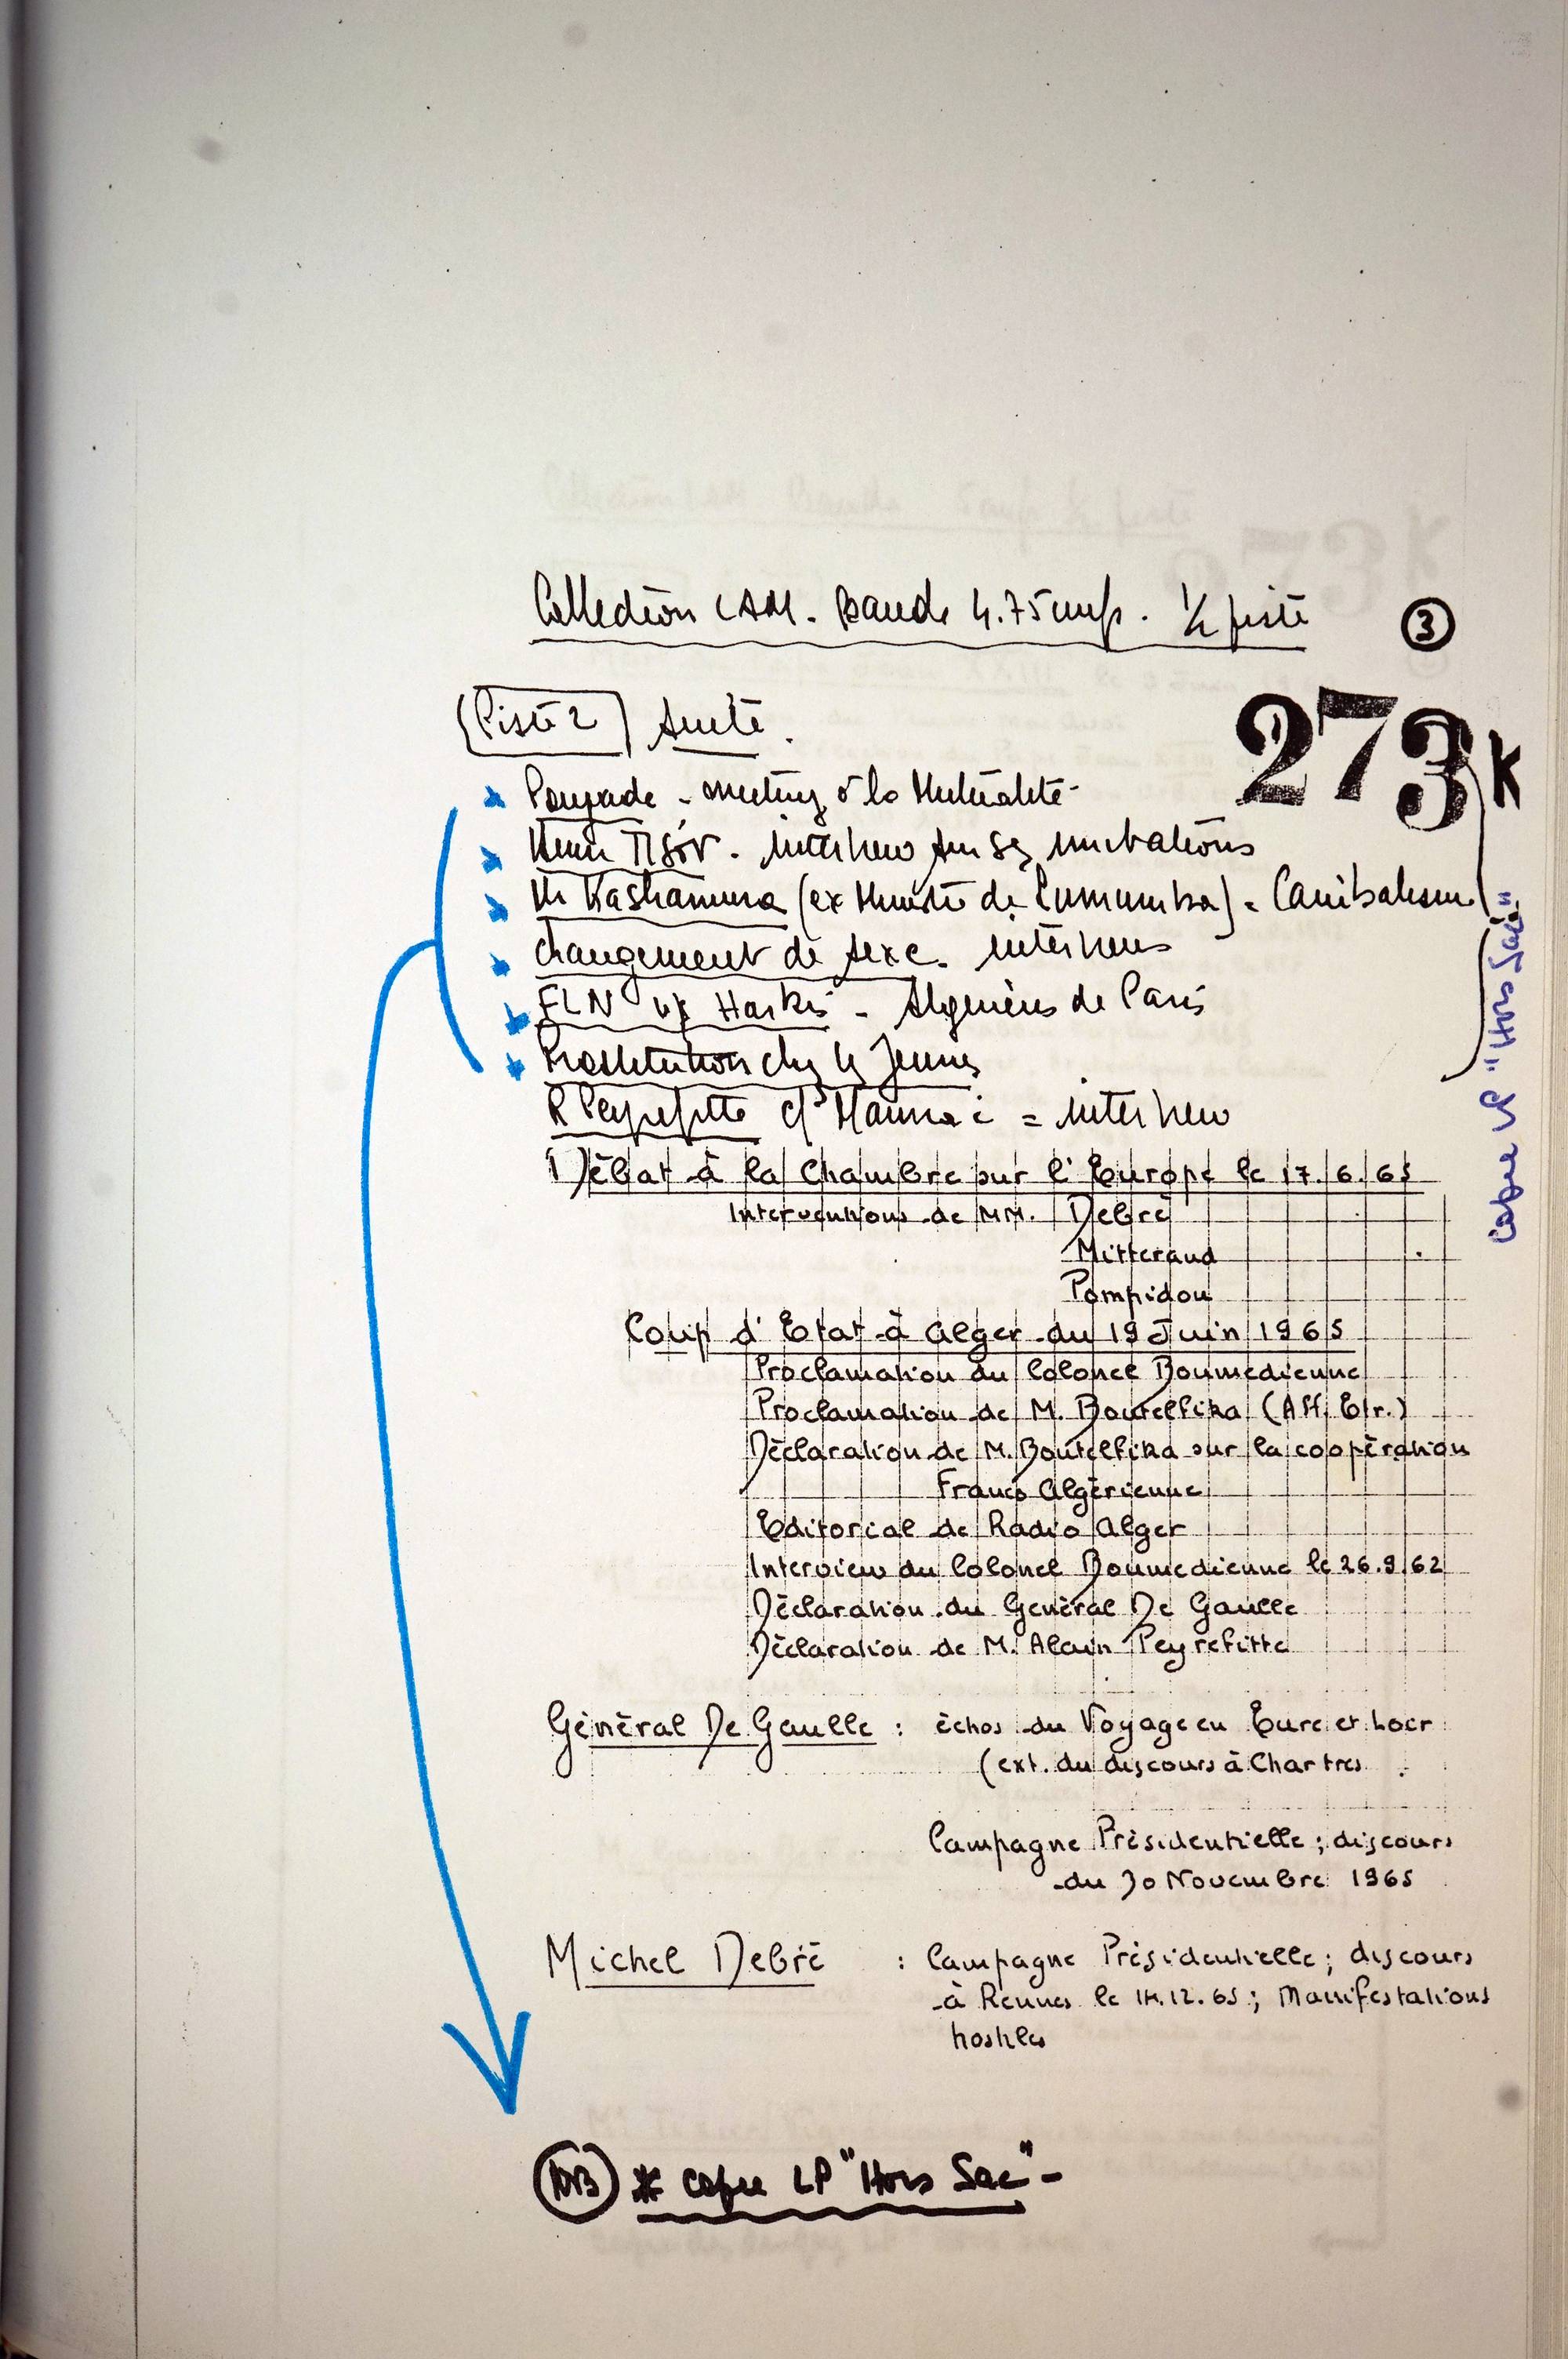 Collection CAM. Bande 4.75 cm/s. ½ piste
3
273 K
(Piste 2) suite.
Poujade - meeting à la Mutualité -
Henri Tisot. interview sur ses imitations
Mr Kashamura (ex Ministre de Lumumba) = Canibalisme
changement de sexe. interviews
FLN Harkis - Algériens de Paris
Prostitution chez les Jeunes
R Peyrefitte = interview
Débat à la Chambre sur l'Europe le 17.6.65
Interventions de MM. Debré
Mitterand
Pompidou
Coup d'Etat à Alger du 19 Juin 1965
Proclamation du Colonel Boumedienne
Proclamation de M. Boutellika (Aff. Etr.)
Déclaration de M. Boutellika sur la coopération
Franco Algérienne
Editorial de Radio Alger
Interview du Colonel Boumedienne le 26.9.62
Déclaration du Général De Gaulle
Déclaration de M. Alain Peyrefitte
Général De Gaulle : échos du Voyage en Eure et Loir
(ext. du discours à Chartres
Campagne Présidentielle ; discours
du 30 Novembre 1965
Michel Debré : Campagne Présidentielle ; discours
à Rennes le 14.12.65 ; Manifestations
hostiles
NB * copie LP "Hors Sac" -
copie LP "Hors Sac"